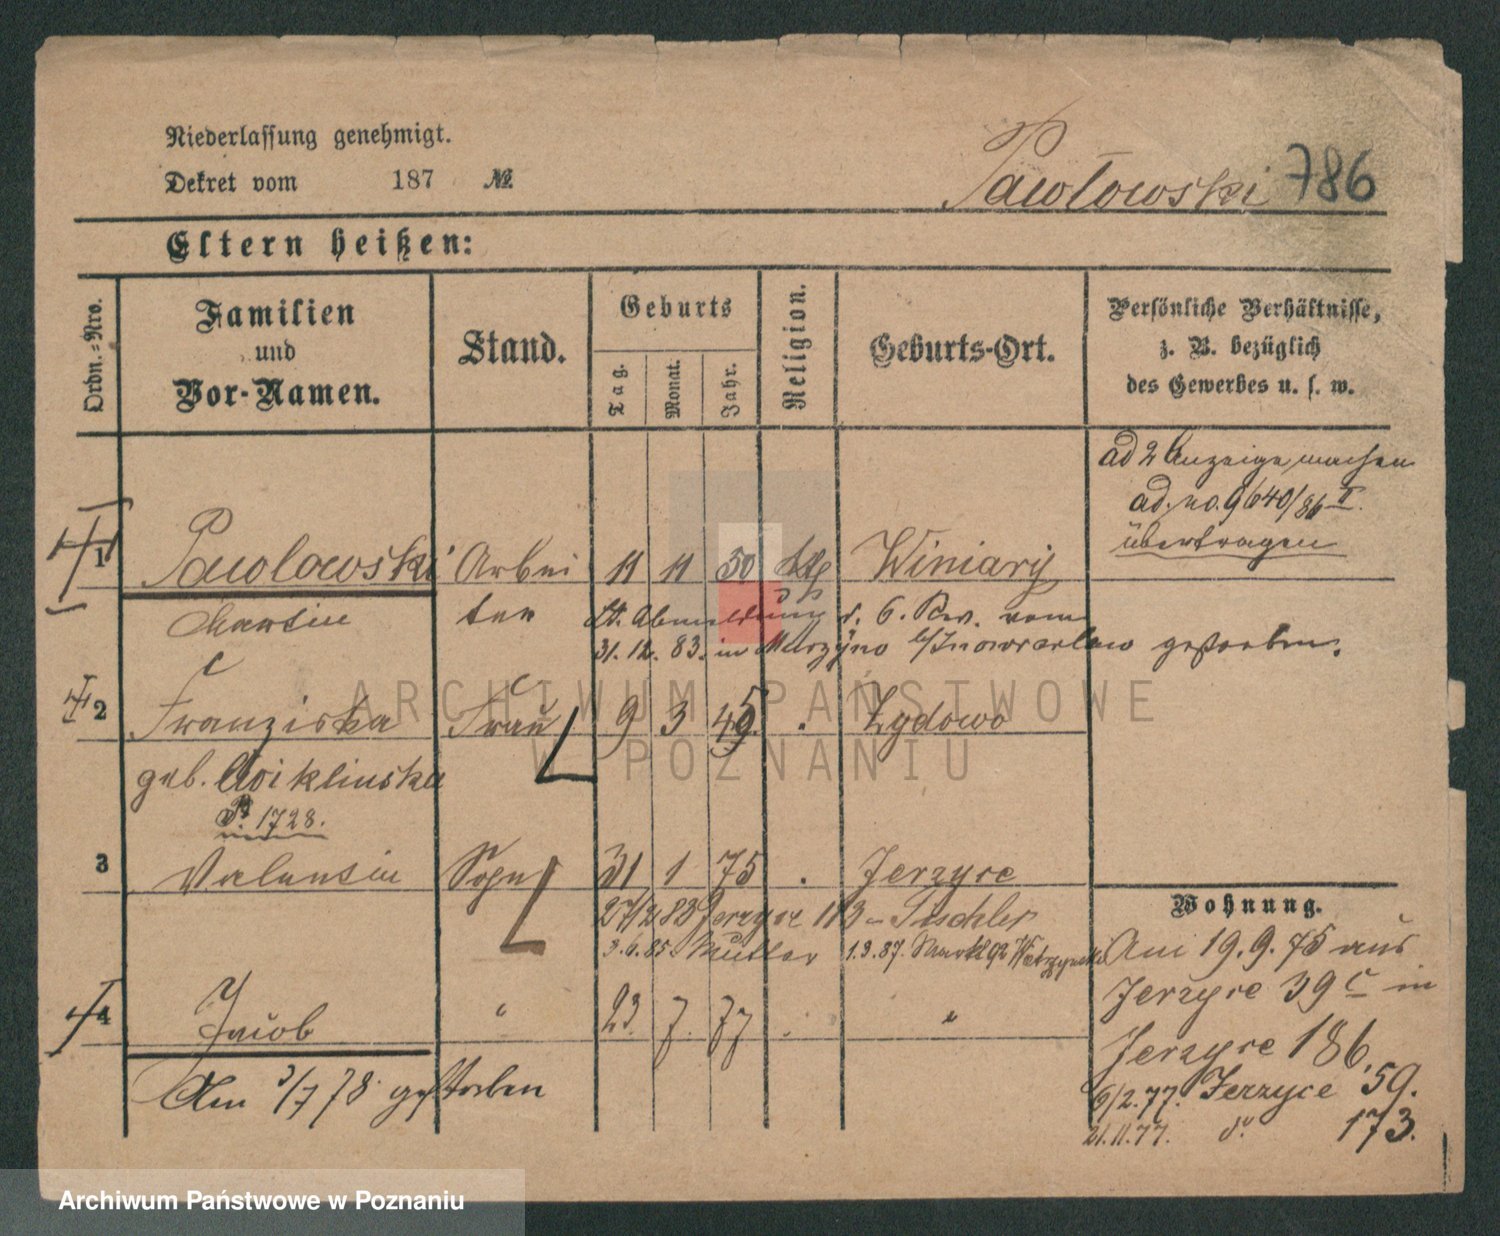 Niederlassung genehmigt.
Dekret vom 187 №
Pawłowski 786
Eltern heißen:
Ordn.-Nro.
Familien und Vor-Namen.
Stand.
Geburts
Tag.
Monat.
Jahr.
Religion.
Geburts-Ort.
Persönliche Verhältnisse,
z. B. bezüglich
des Gewerbes u. s. w.
ad 2 Anzeige machen
ad. no. 9640/86 II.
übertragen
1 Pawlowski Arbei 11 11 50 kth Winiary
Martin ter
Lt. Abmeldung d. 6. Rev. vom
31. 12. 83. in Murzyno b/Inowraclaw gestorben.
2 Franziska Frau 9 3 Zydowo
geb. Cwiklinska
1728.
3 Valentin Sohn 31 1 75 . Jerzyce
83 Jerzyce 113 - Tischler
3.6.85. Mutter 1.3.87. Markt 92
4 Jacob " 23 7. 77 . "
Am 3/7 78 gestorben
Wohnung.
Am 19. 9. 75 aus
Jerzyce 39 c in
Jerzyce 186,
6/2. 77. Jerzyce 59.
21.11.77. d. 173.
ARCHIWUM PAŃSTWOWE
W POZNANIU
Archiwum Państwowe w Poznaniu